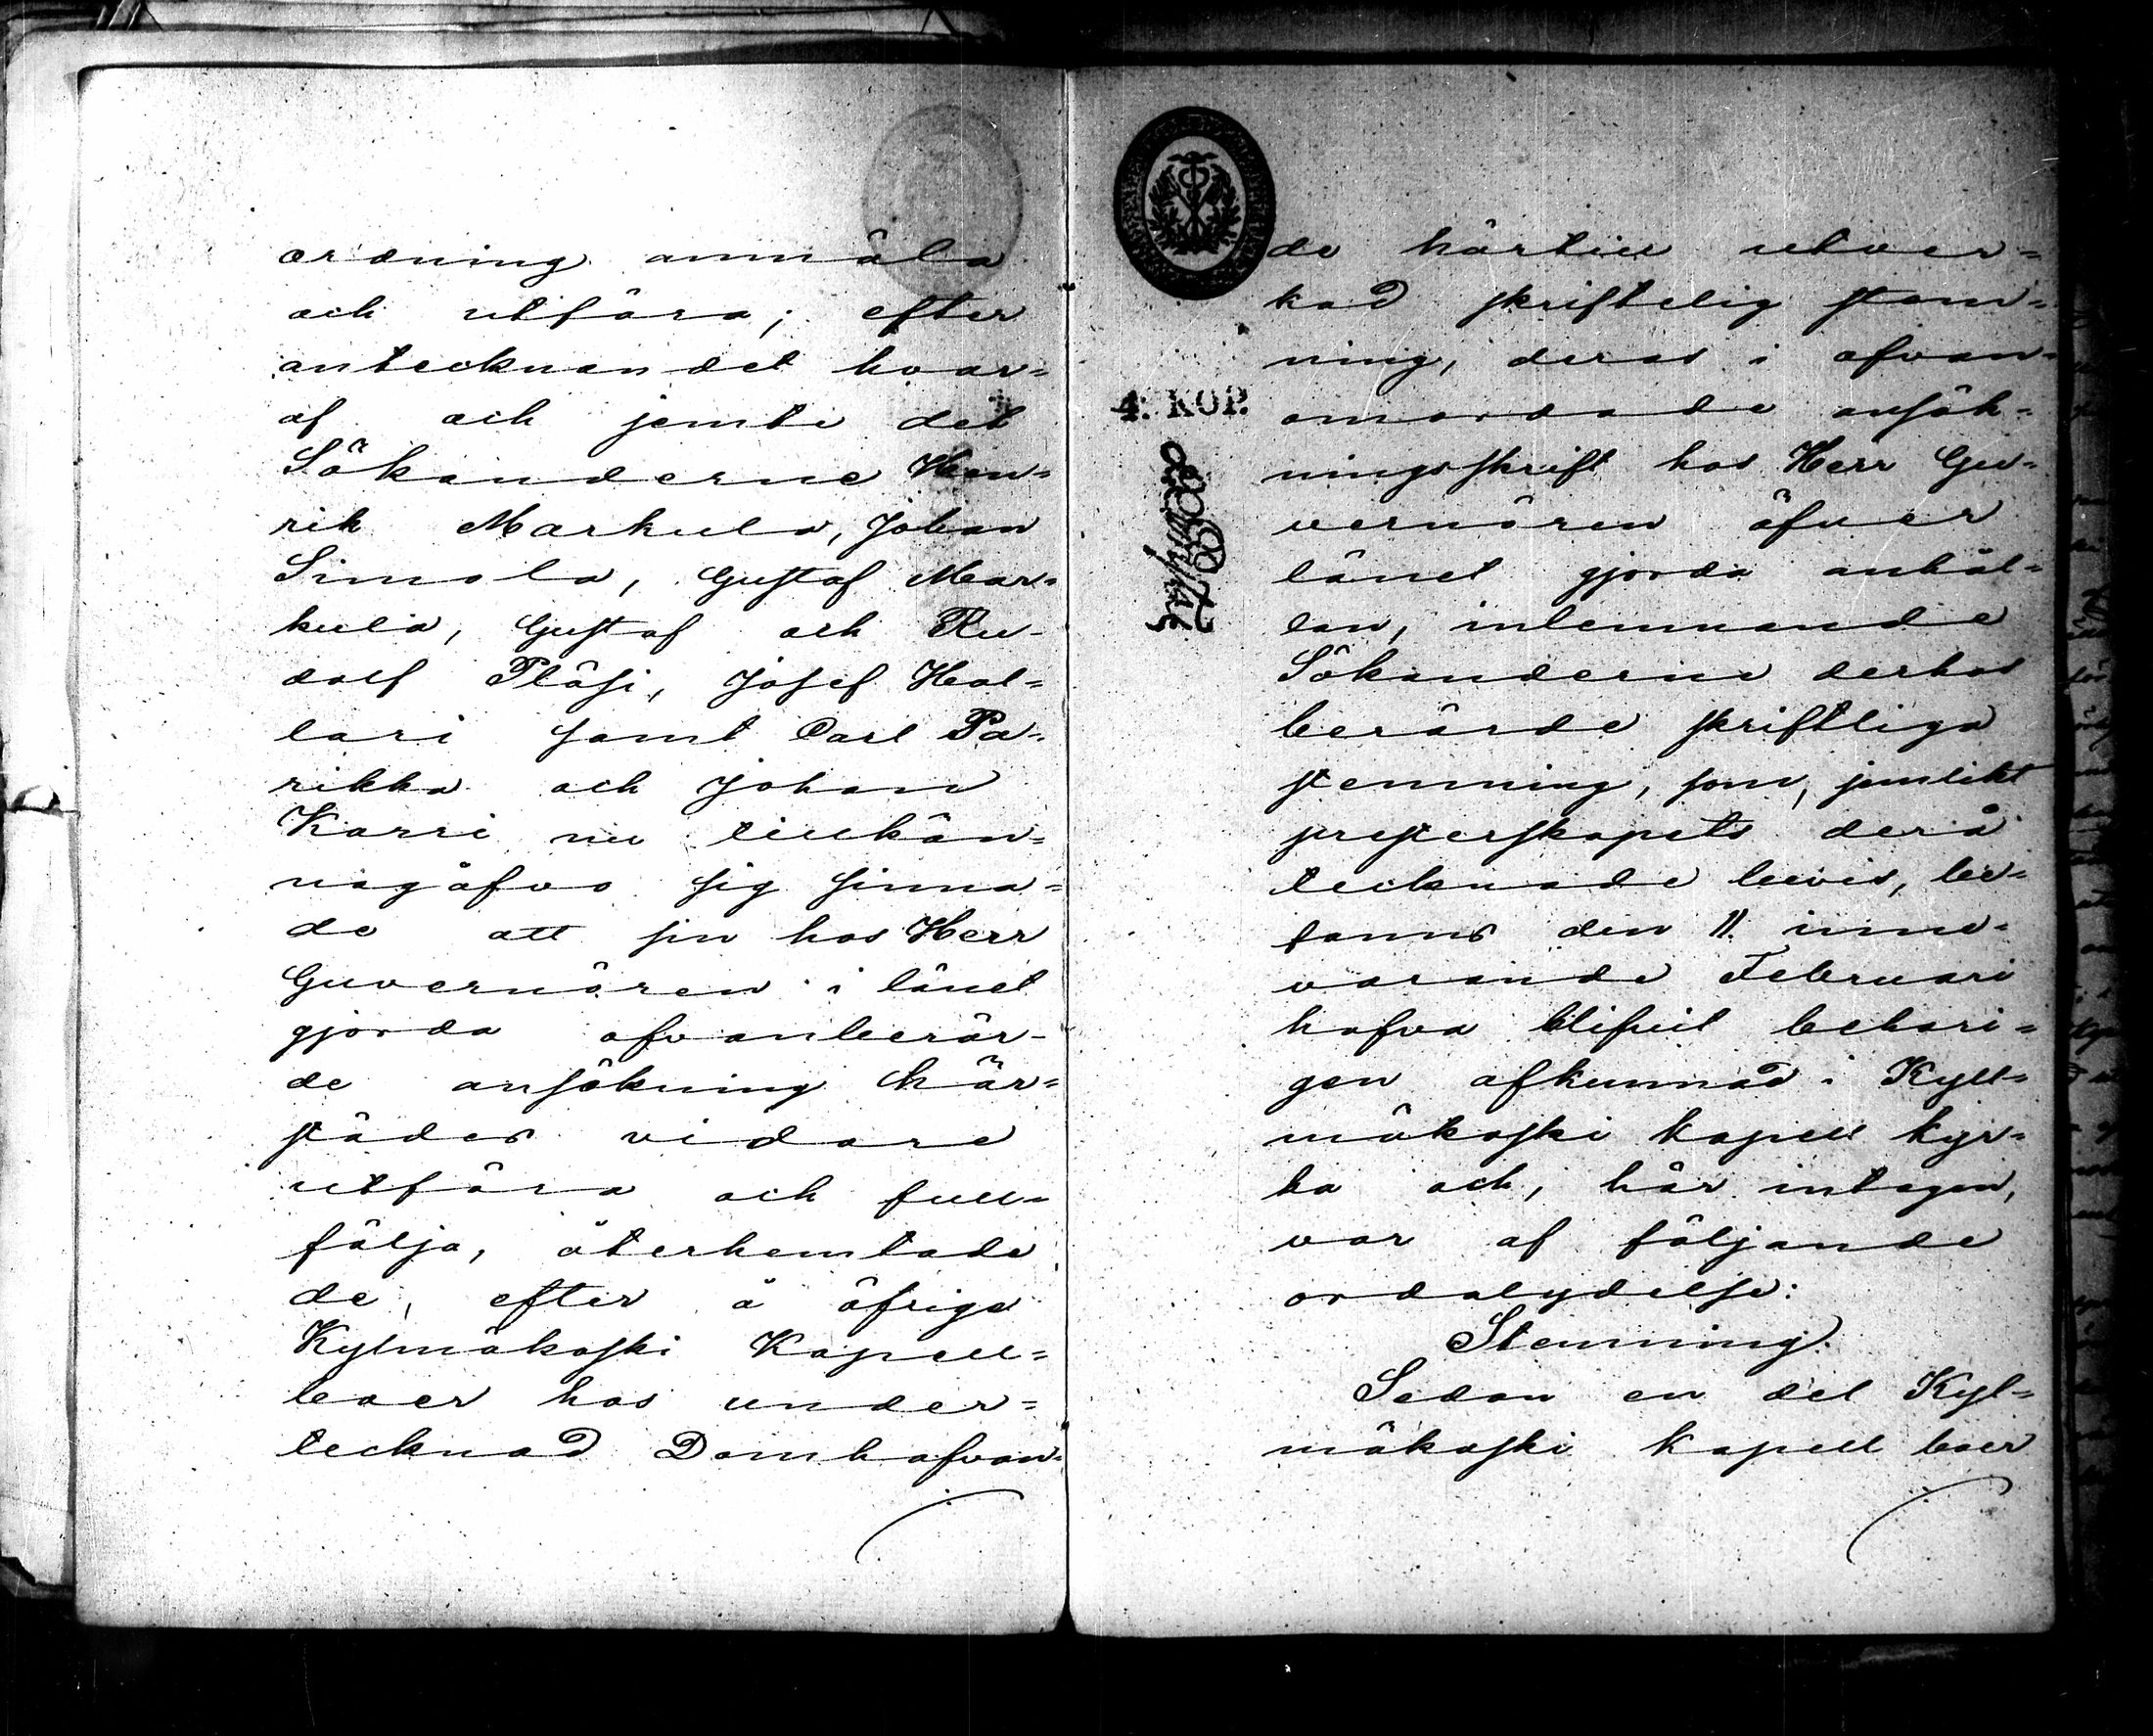 ordning anmäla
och utföra; efter
antecknandet hvar=
af och jemte det
Sökanderne Hen=
rik Markula, Johan
Simola, Gustaf Mar=
kula, Gustaf och Ru=
dolf Pläsi, Josef Hal=
lari samt Carl Pa=
rikka och Johan
Karri nu tillkän=
nagåfvo sig sinna=
de att sin hos Herr
Guvernören i länet
gjorda ofvanberör=
de ansökning här=
städes vidare
utföra och full=
följa, återhemtade
de, efter å öfriga
Kylmäkoski Kapell=
boer hos under=
tecknad Domhafvan=
de härtill utver=
kad skriftelig stem=
ning, deras i ofvan=
omordade ansök=
4: KOP.
ningsskrift hos Herr Gu=
vernören öfver
länet gjorda anhål=
lan, inlemnande
Sökanderne derhos
berörde skriftliga
stemning, som, jemlikt
presterskapets derå
tecknade bevis, be=
fanns den 11 inne=
varande Februari
hafva blifvit behöri=
gen afkunnad i Kyll=
mäkoski kapell kyr=
ka och, här intagen,
var af följande
ordalydelse:
Stemning.
Sedan en del Kyl=
mäkoski kapell boer